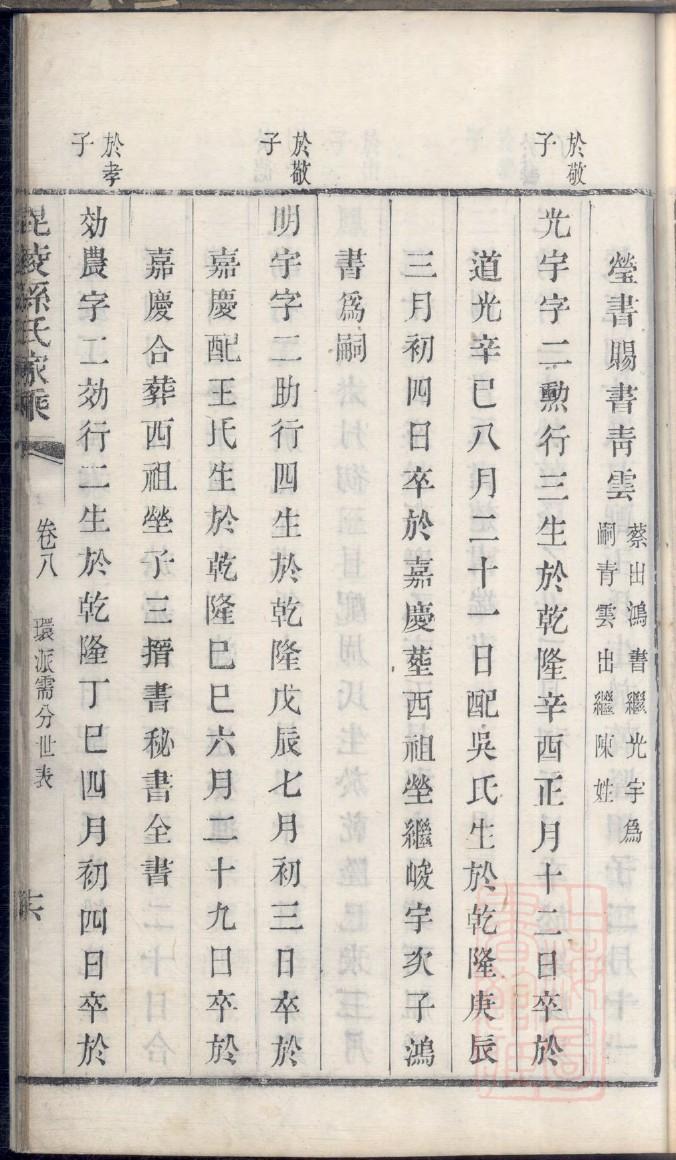 瑩書賜書靑雲
蔡出鴻書繼光宇爲
嗣青雲出繼陳姓
於敬
子
光宇字二勲行三生於乾隆辛酉正月十二日卒於
道光辛巳八月二十一日配吳氏生於乾隆庚辰
三月初四日卒於嘉慶塟西祖塋繼峻宇次子鴻
書爲嗣
於敬
子
明宇字二助行四生於乾隆戊辰七月初三日卒於
嘉慶配王氏生於乾隆巳巳六月二十九日卒於
嘉慶合葬西祖塋子三搢書秘書全書
於孝
子
効農字工効行二生於乾隆丁巳四月初四日卒於
毘陵孫氏家乘
卷八
環派需分世表